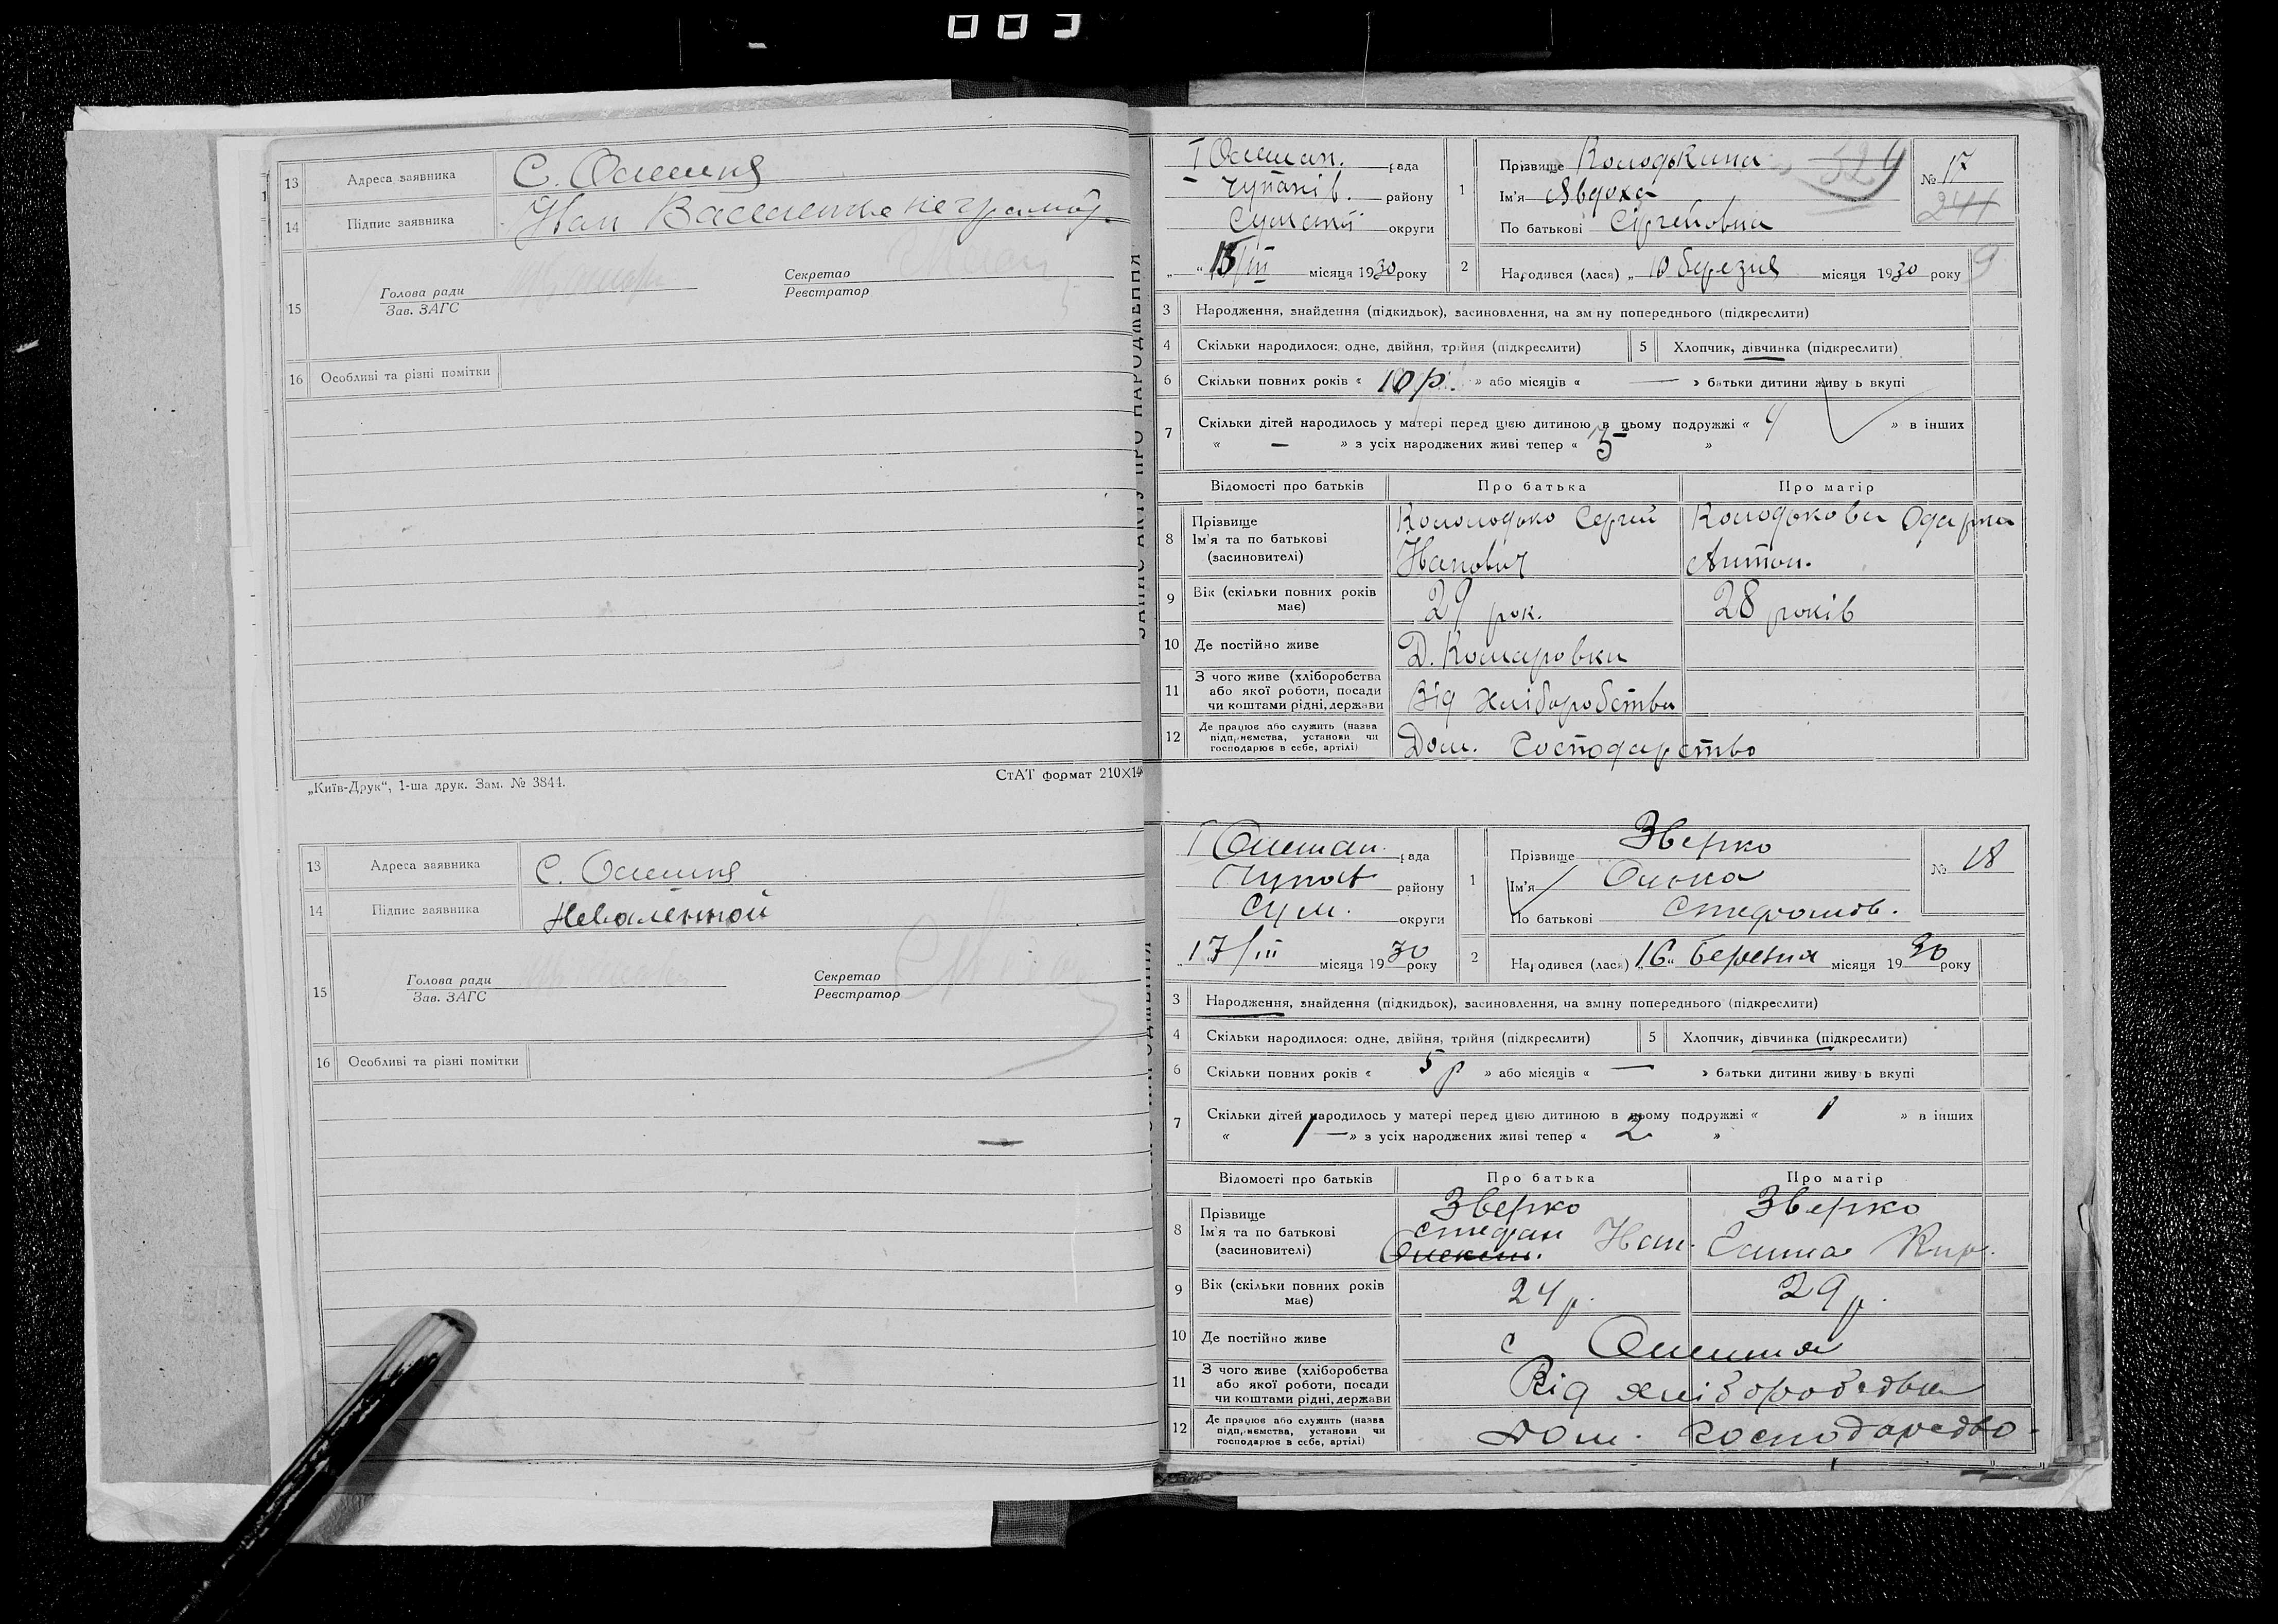 003
13 Адреса заявника С. Олешня
14 Підпис заявника Іван неграмот.
15 Голова ради Секретар
Зав. ЗАГС Реєстратор
16 Особливі та різні помітки
„Київ-Друк“, 1-ша друк. Зам. № 3844. СтАТ формат 210×14
13 Адреса заявника С. Олешня
14 Підпис заявника
15 Голова ради Секретар
Зав. ЗАГС Реєстратор
16 Особливі та різні помітки
ЗАПИС АКТУ ПРО НАРОДЖЕННЯ
I Олешан. рада
Чупахів. району
Сумської округи
„ “ 15/III місяця 1930 року
1 Прізвище Колодькина 329
Ім'я Явдоха
По батькові Сергеївна
№ 17
241
2 Народився (лася) „ 10 березня місяця 1930 року 9
3 Народження, знайдення (підкидьок), засиновлення, на зм ну попереднього (підкреслити)
4 Скільки народилося: одне, двійня, трійня (підкреслити) 5 Хлопчик, дівчинка (підкреслити)
6 Скільки повних років « 10 р. » або місяців « — » батьки дитини живу ь вкупі
7 Скільки дітей народилось у матері перед цією дитиною в цьому подружжі « 4 » в інших
« — » з усіх народжених живі тепер « 5 »
Відомості про батьків Про батька Про матір
8 Прізвище Кололодько Сергій Колодькова Одарка
Ім'я та по батькові Іванович Антон.
(засиновителі)
9 Вік (скільки повних років має) 29 рок. 28 років
10 Де постійно живе Д. Комаровка
11 З чого живе (хліборобства
або якої роботи, посади
чи коштами рідні, держави Від хліборобства
12 Де працює або служить (назва
підприємства, установи чи
господарює в себе, артілі) Дом. Господарство
I Олешан. рада
Чупах району
Сум. округи
„17/III місяця 1930 року
1 Прізвище Зверко
Ім'я Олька
По батькові Стефанов.
№ 18
2 Народився (лася) „16“ березня місяця 1930 року
3 Народження, знайдення (підкидьок), засиновлення, на зміну попереднього (підкреслити)
4 Скільки народилося: одне, двійня, трійня (підкреслити) 5 Хлопчик, дівчинка (підкреслити)
6 Скільки повних років « 5 р » або місяців « — » батьки дитини живу ь вкупі
7 Скільки дітей народилось у матері перед цією дитиною в цьому подружжі « 1 » в інших
« 1 — » з усіх народжених живі тепер « 2 »
Відомості про батьків Про батька Про матір
8 Прізвище Зверко Зверко
Ім'я та по батькові Стефан Іван. Ганна Кир.
(засиновителі)
9 Вік (скільки повних років має) 24 р. 29 р.
10 Де постійно живе с Олешня
11 З чого живе (хліборобства
або якої роботи, посади
чи коштами рідні, держави Від хліборобства
12 Де працює або служить (назва
підприємства, установи чи
господарює в себе, артілі) Дом. Господарство